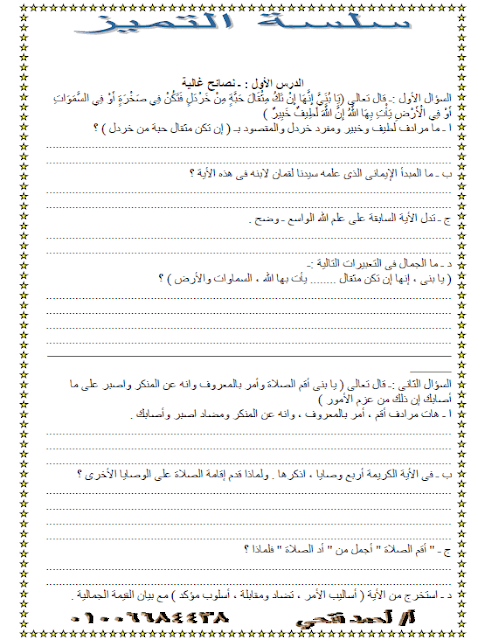 سلسة التميز
الدرس الأول : ـ نصائح غالية
السؤال الأول :ـ قال تعالى (يَا بُنَيَّ إِنَّهَا إِنْ تَكُ مِثْقَالَ حَبَّةٍ مِنْ خَرْدَلٍ فَتَكُنْ فِي صَخْرَةٍ أَوْ فِي السَّمَوَاتِ
أَوْ فِي الْأَرْضِ يَأْتِ بِهَا اللَّهُ إِنَّ اللَّهَ لَطِيفٌ خَبِيرٌ )
ا ـ ما مرادف لطيف وخبير ومفرد خردل والمقصود بـ ( إن تكن مثقال حبة من خردل ) ؟
ب ـ ما المبدأ الإيمانى الذى علمه سيدنا لقمان لابنه فى هذه الأية ؟
ج ـ تدل الأية السابقة على علم الله الواسع ـ وضح .
د ـ ما الجمال فى التعبيرات التالية :ـ
( يا بنى ، إنها إن تكن مثقال ........ يأت بها الله ، السماوات والأرض ) ؟
السؤال الثانى :ـ قال تعالى ( يا بنى أقم الصلاة وأمر بالمعروف وانه عن المنكر واصبر على ما
أصابك إن ذلك من عزم الأمور )
ا ـ هات مرادف أقم ، أمر بالمعروف ، وانه عن المنكر ومضاد اصبر وأصابك .
ب ـ فى الأية الكريمة أربع وصايا ، اذكرها . ولماذا قدم إقامة الصلاة على الوصايا الأخرى ؟
ج ـ " أقم الصلاة " أجمل من " أد الصلاة " فلماذا ؟
د ـ استخرج من الأية ( أساليب الأمر ، تضاد ومقابلة ، أسلوب مؤكد ) مع بيان القيمة الجمالية .
أ/ أحمد فتحي ٠١٠٠٦٦٨٤٤٣٨